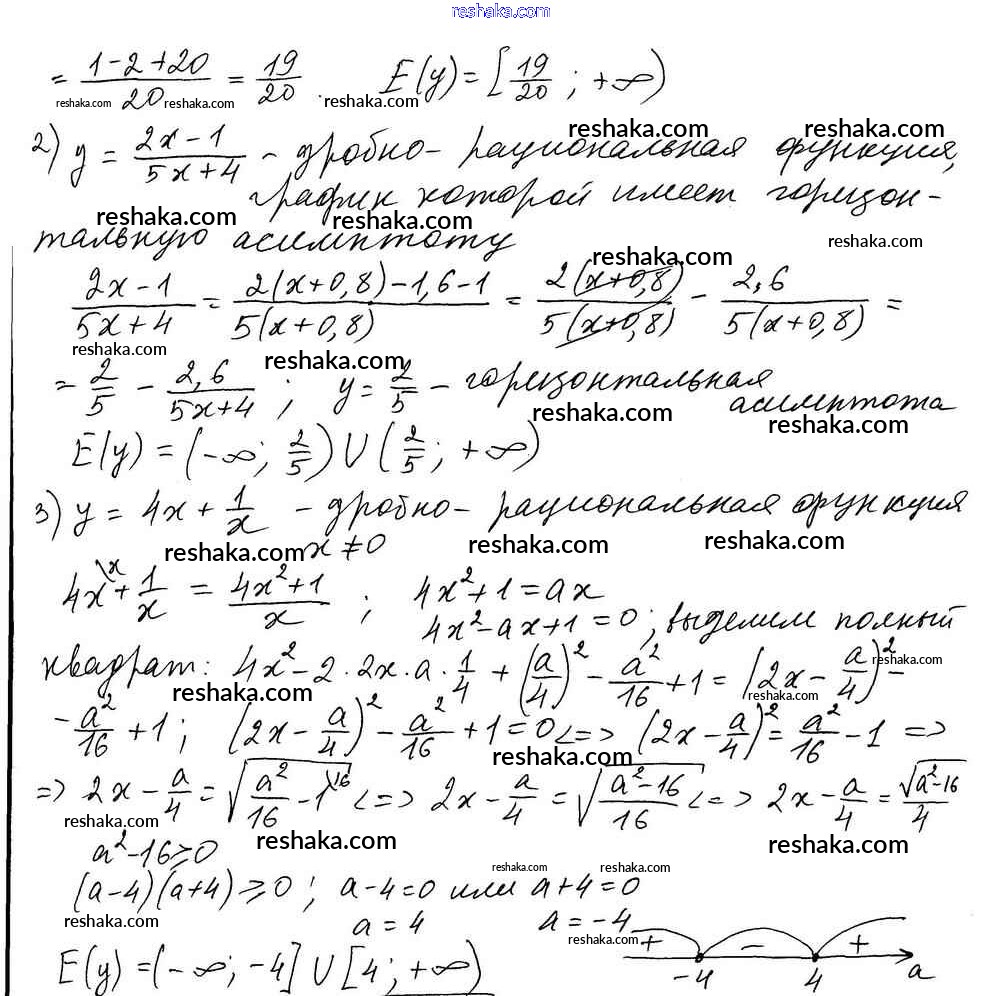 reshaka.com
= (1-2+20)/20 = 19/20 . E(y) = [19/20 ; +∞)
reshaka.com reshaka.com reshaka.com
reshaka.com reshaka.com
2) y = (2x-1)/(5x+4) - дробно-рациональная функция,
график которой имеет горизон-
reshaka.com reshaka.com
тальную асимптоту
reshaka.com
reshaka.com
(2x-1)/(5x+4) = (2(x+0,8)-1,6-1)/(5(x+0,8)) = (2(x+0,8))/(5(x+0,8)) - 2,6/(5(x+0,8)) =
reshaka.com reshaka.com
= 2/5 - 2,6/(5x+4) ; y = 2/5 - горизонтальная
асимптота
reshaka.com reshaka.com
E(y) = (-∞; 2/5) U (2/5; +∞)
3) y = 4x + 1/x - дробно-рациональная функция
x ≠ 0
reshaka.com reshaka.com reshaka.com
4x\x + 1/x = (4x²+1)/x ; 4x²+1 = ax
4x²-ax+1=0; выделим полный
квадрат: 4x²-2·2x·a·1/4 + (a/4)² - a²/16 + 1 = (2x - a/4)² -
reshaka.com reshaka.com reshaka.com
- a²/16 + 1; (2x - a/4)² - a²/16 + 1 = 0 <=> (2x - a/4)² = a²/16 - 1 =>
reshaka.com
=> 2x - a/4 = √(a²/16 - 1\16) <=> 2x - a/4 = √((a²-16)/16) <=> 2x - a/4 = √(a²-16)/4
reshaka.com
a²-16≥0
reshaka.com reshaka.com
(a-4)(a+4)≥0; a-4=0 или a+4=0
reshaka.com reshaka.com
a = 4 a = -4
reshaka.com reshaka.com
+ - +
-4 4 a
E(y) = (-∞; -4] U [4; +∞)